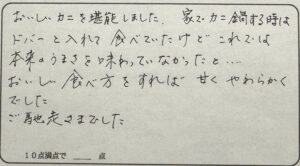 おいしいカニを堪能しました。家でカニ鍋する時は
ドバーと入れて食べていたけどこれでは
本来のうまさを味わっていなかったと…
おいしい食べ方をすれば甘くやわらかく
でした
ご馳走さまでした
10点満点で 点